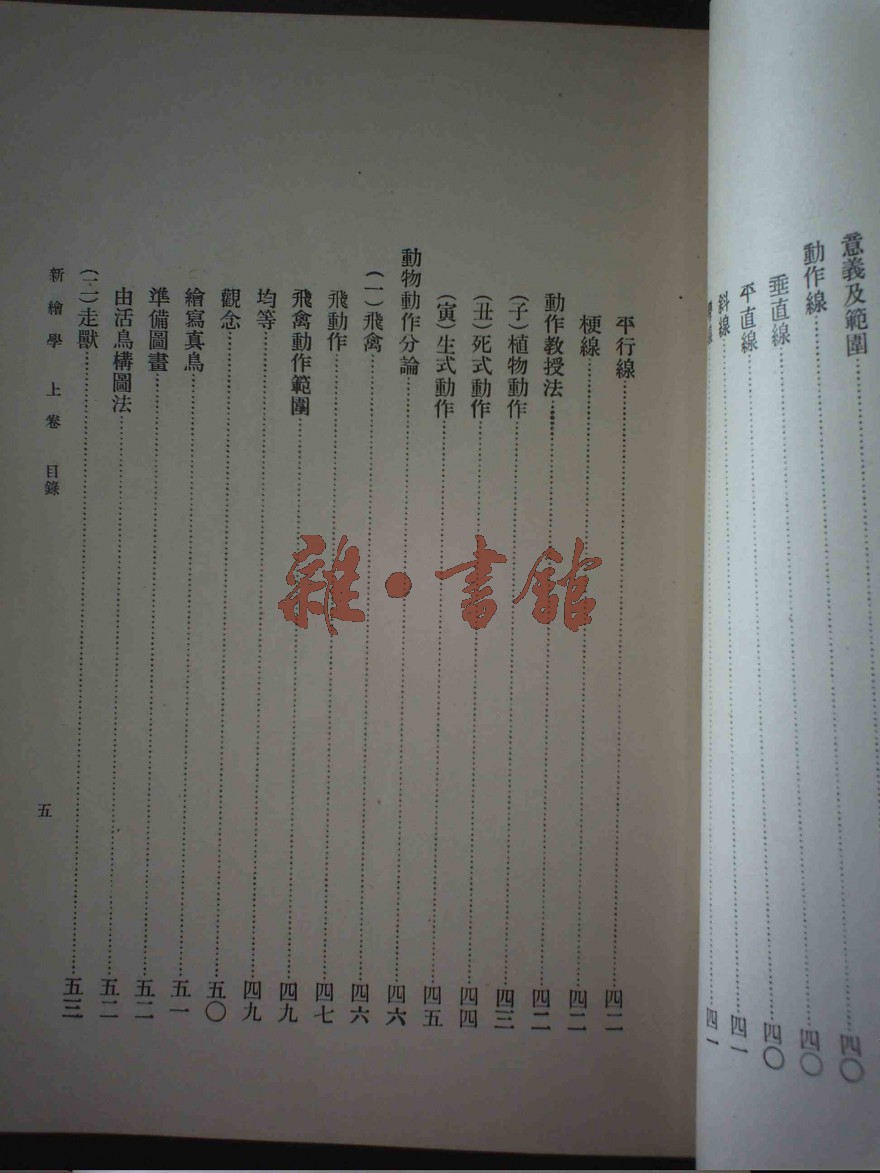 意義及範圍……四〇
動作線……四〇
垂直線……四〇
平直線……四一
斜線……四一
平行線……四二
梗線……四二
動作教授法……四二
(子)植物動作……四三
(丑)死式動作……四四
(寅)生式動作……四五
動物動作分論……四六
(一)飛禽……四六
飛動作……四七
飛禽動作範圍……四九
均等……四九
觀念……五〇
繪寫真鳥……五一
準備圖畫……五二
由活鳥構圖法……五二
(二)走獸……五三
新繪學 上卷 目錄
五
雜·書館